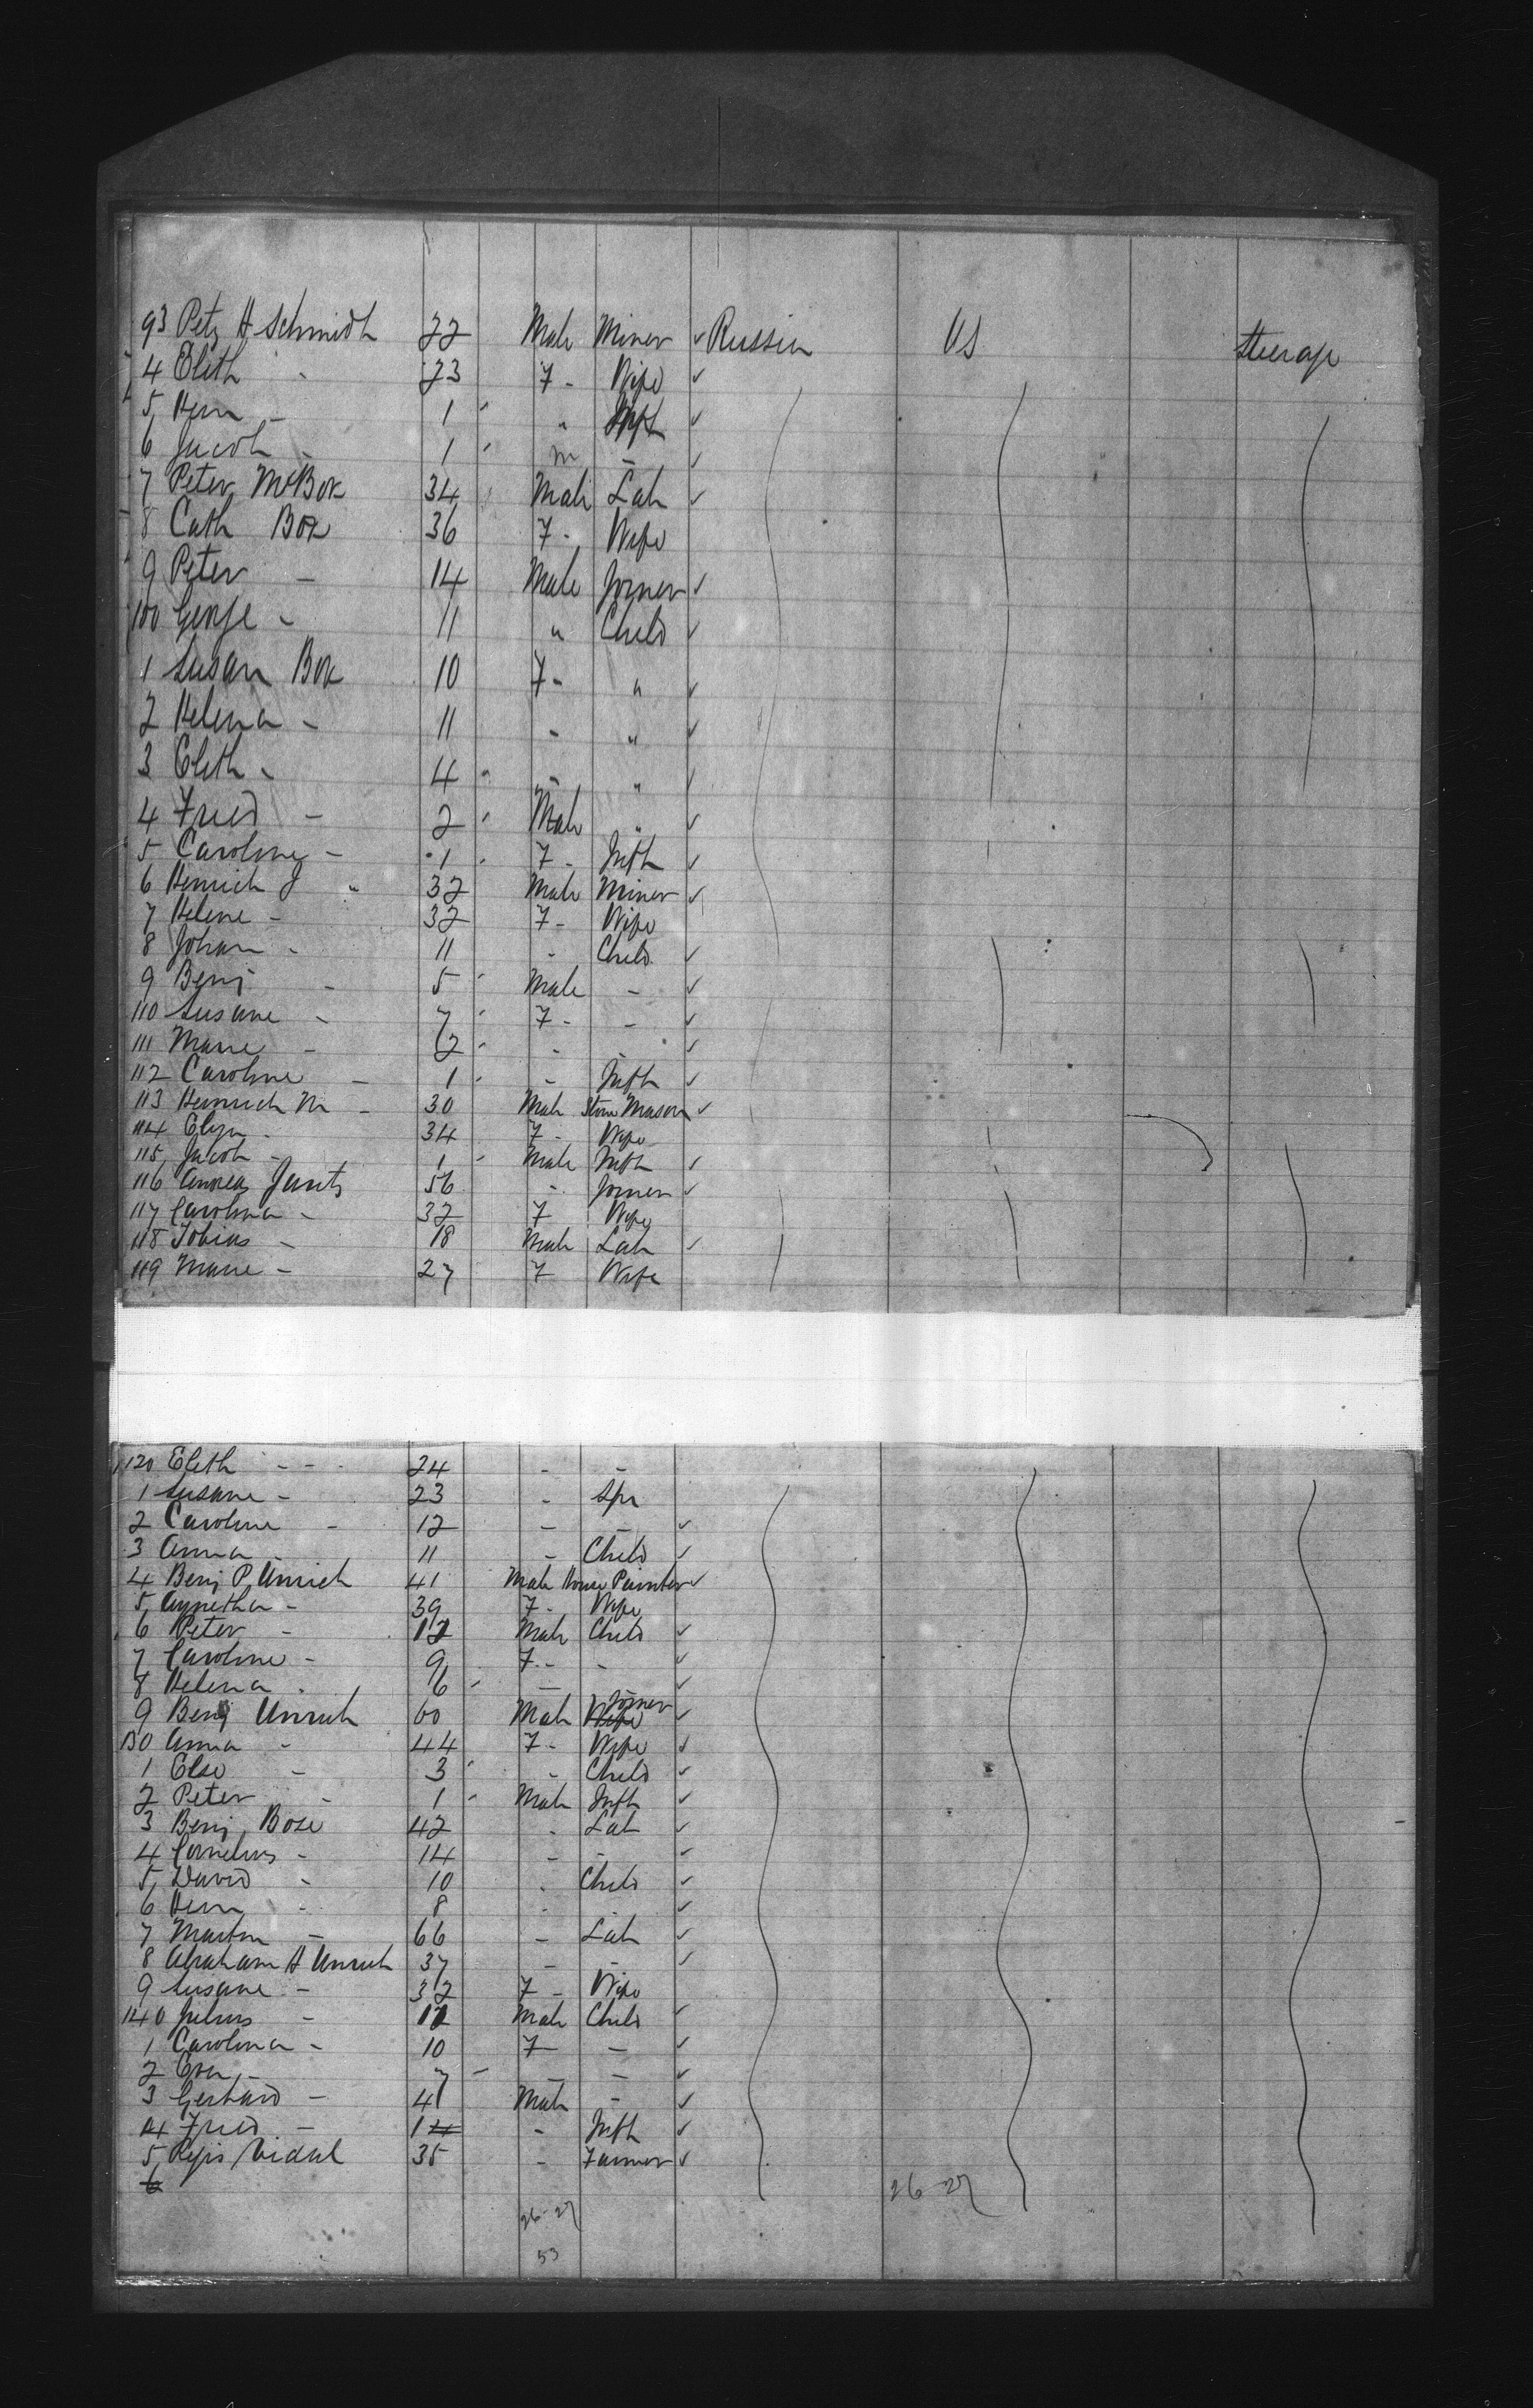 93 Petz H Schmidt 22 Male Miner ✓ Russia US Steerage
4 Elith - 23 F - Wife ✓
5 Hern - 1 " Inft ✓
6 Jacob - 1 m - ✓
7 Peter M Box 34 Male Lab ✓
8 Cath Box 36 F - Wife
9 Peter - 14 Male Joiner ✓
100 George - 11 " Child ✓
1 Susan Box 10 F - " ✓
2 Helena - 11 - " ✓
3 Elith - 4 - " ✓
4 Fried - 2 Male " ✓
5 Caroline - 1 F - Inft ✓
6 Henrich J " 32 Male Miner ✓
7 Helene - 32 F - Wife
8 Johan - 11 - Child ✓
9 Benj - 5 Male - ✓
110 Susane - 7 F - - ✓
111 Marie - 2 - - ✓
112 Caroline - 1 - Inft ✓
113 Heinrich M - 30 Male Stone Mason ✓
114 - 34 F - Wife
115 Jacob - 1 Male Inft ✓
116 Andreas Jantz 56 - Joiner ✓
117 Carolina - 32 F Wife
118 Tobias - 18 Male Lab ✓
119 Marie - 27 F Wife
120 Elith - - - 24 - -
1 Susane - 23 - Spr
2 Caroline - 12 - - ✓
3 Anna - 11 - Child ✓
4 Benj P Unrich 41 Male House Painter ✓
5 Agnetha - 39 F - Wife
6 Peter - 12 Male Child ✓
7 Caroline - 9 F - - ✓
8 Helena - 6 - ✓
9 Benj Unruh 60 Male Joiner Wife ✓
130 Anna - 44 F - Wife ✓
1 Else - 3 - Child ✓
2 Peter - 1 Male Inft ✓
3 Benj Bose 42 - Lab ✓
4 Cornelius - 14 - - ✓
5 David - 10 - Child ✓
6 Hern - 8 - - ✓
7 Martin - 66 - Lab ✓
8 Abraham H Unruh 37 - - ✓
9 Susane - 32 F - Wife
140 Julius - 12 Male Child ✓
1 Carolina - 10 F - ✓
2 Eva - 7 - - ✓
3 Gerhard - 4 Male - ✓
4 Fried - 1 - Inft ✓
5 Regis Vidal 35 - Farmer ✓
6
26-27 26-27
53